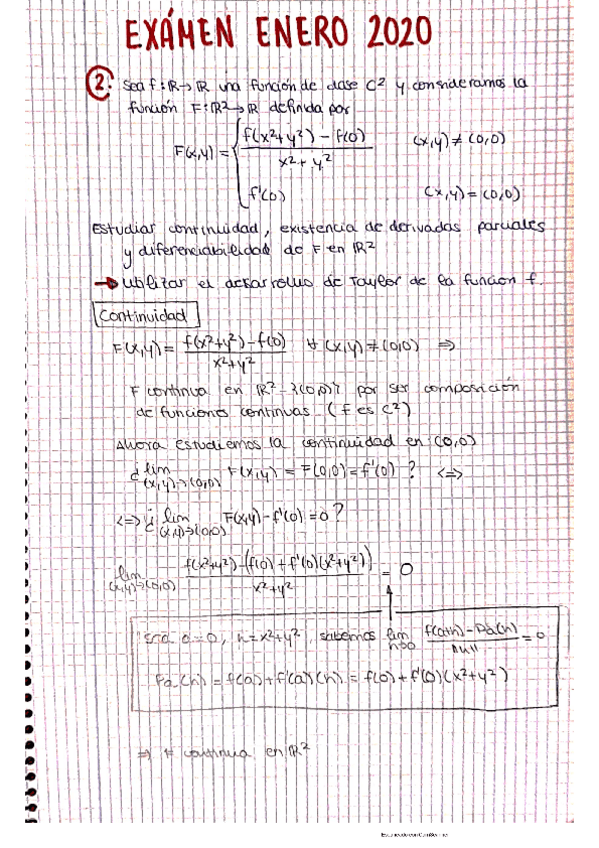 EXÁMEN ENERO 2020
2. Sea f: ℝ→ℝ una función de clase C² y consideramos la
función F: ℝ²→ℝ definida por
F(x,y) = { (f(x²+y²) - f(0)) / (x²+y²)   (x,y) ≠ (0,0)
f'(0)   (x,y) = (0,0)
Estudiar continuidad, existencia de derivadas parciales
y diferenciabilidad de F en ℝ²
→ Utilizar el desarrollo de Taylor de la función f.
Continuidad
F(x,y) = (f(x²+y²) - f(0)) / (x²+y²) ∀ (x,y) ≠ (0,0) ⇒
F continua en ℝ² - {(0,0)} por ser composición
de funciones continuas (f es C²)
Ahora estudiemos la continuidad en (0,0)
¿ lim (x,y)→(0,0) F(x,y) = F(0,0) = f'(0) ? <=>
<=> ¿ lim (x,y)→(0,0) F(x,y) - f'(0) = 0 ?
lim (x,y)→(0,0) (f(x²+y²) - (f(0) + f'(0)(x²+y²))) / (x²+y²) = 0
Sea a=0, h=x²+y², sabemos lim h→0 (f(a+h) - Pa(h)) / ||h|| = 0
Pa(h) = f(a) + f'(a)(h) = f(0) + f'(0)(x²+y²)
⇒ F continua en ℝ²